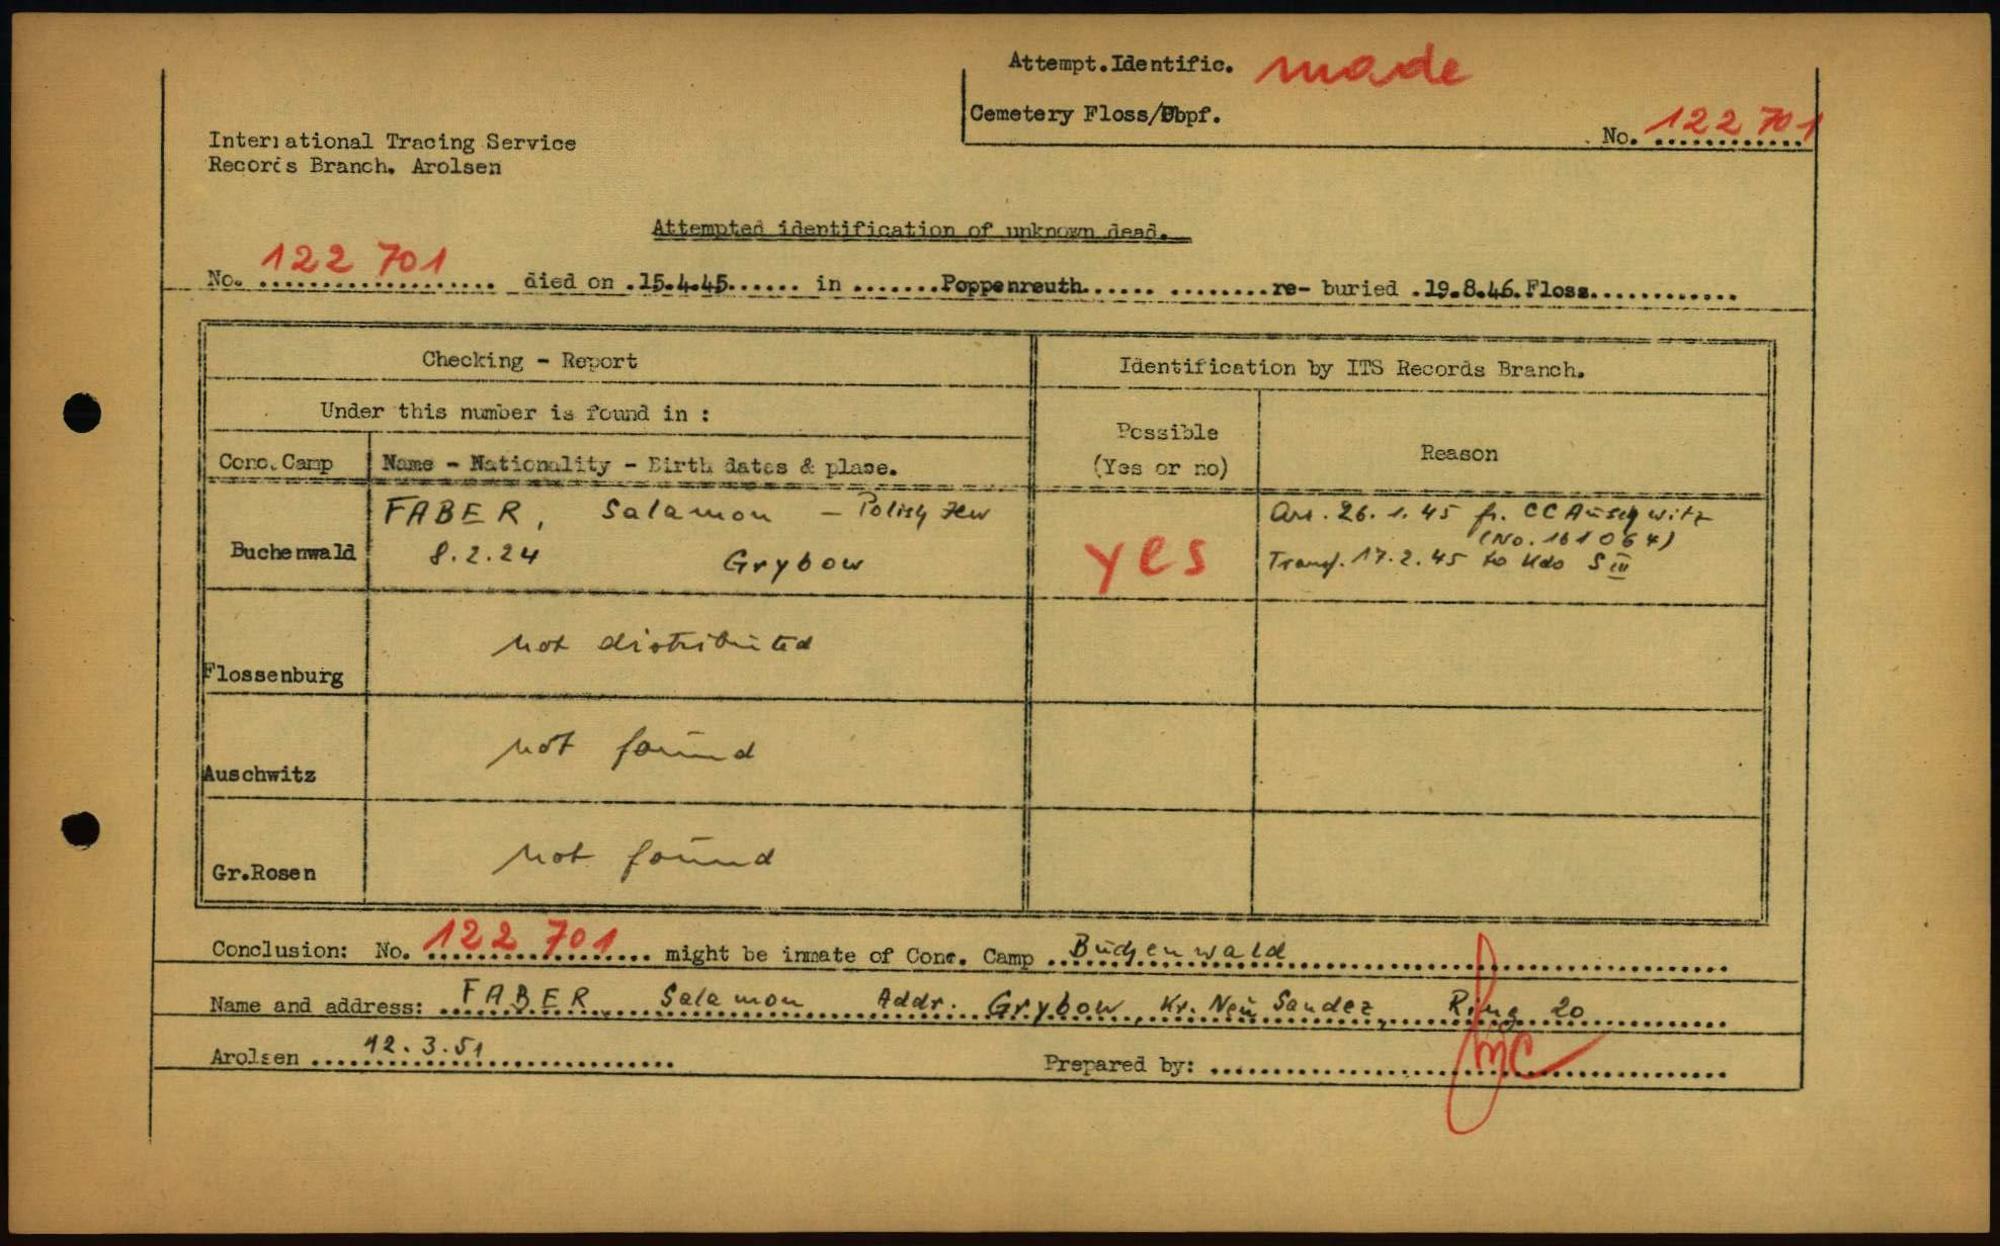 Attempt.Identific. made
Cemetery Floss/Obpf.
No. 122 701
International Tracing Service
Records Branch. Arolsen
Attempted identification of unknown dead.
No. 122 701 died on 15.4.45 in Poppenreuth re- buried 19.8.46.Floss
Checking - Report
Identification by ITS Records Branch.
Under this number is found in :
Possible
(Yes or no)
Reason
Conc. Camp
Name - Nationality - Birth dates & place.
Buchenwald
FABER, Salamon - Polish Jew
8.2.24 Grybow
yes
Arr. 26.1.45 fr. CC Auschwitz
(No. 161064)
Transf. 17.2.45 to Kdo S III
Flossenburg
not distributed
Auschwitz
not found
Gr.Rosen
not found
Conclusion: No. 122 701 might be inmate of Conc. Camp Buchenwald
Name and address: FABER Salamon Addr. Grybow, Kr. Neu Sandez, Ring 20
Arolsen 12.3.51
Prepared by: